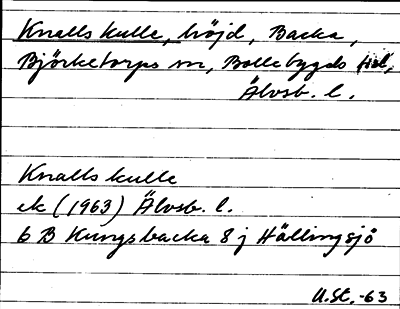 Knalls kulle, höjd, Backa,
Björketorps sn, Bollebygds hd,
Älvsb. l.
Knalls kulle
ek (1963) Älvsb. l.
6 B Kungsbacka 8 j Hällingsjö
U.St. -63